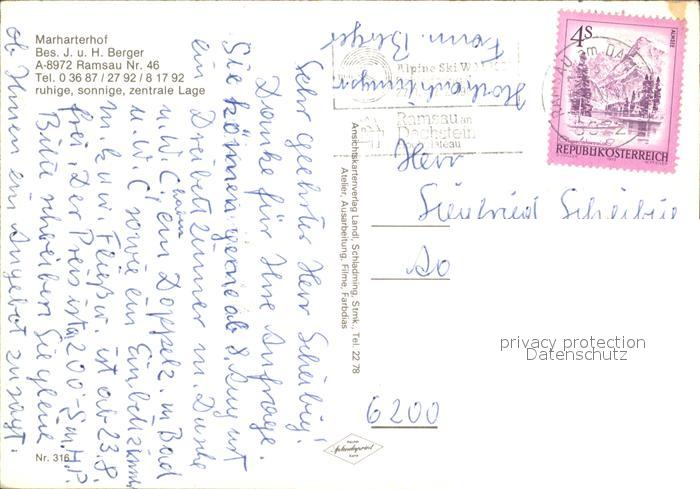 Marharterhof
Bes. J. u. H. Berger
A-8972 Ramsau Nr. 46
Tel. 0 36 87 / 27 92 / 8 17 92
ruhige, sonnige, zentrale Lage
Sehr geehrter Herr Scheibig!
Danke für Ihre Anfrage.
Sie können gerne ab 8. Aug
ein Dreibettzimmer m. Dusche
u. W.C, ein Doppelz. m Bad
u. W.C sowie ein Einbettzimm
m. k u w. Fließw. ist ab 23.8.
frei. Der Preis ist 200.- S m. H.P.
Bitte schreiben Sie gleich
ob Ihnen ein Angebot zusagt.
Hochachtungs
Fam. Berger
Ansichtskartenverlag Landl, Schladming, Stmk., Tel. 22 78
Atelier, Ausarbeitung, Filme, Farbdias
Alpine Ski
Ramsau am
Dachstein
4S
ALMSEE
REPUBLIK ÖSTERREICH
Herr
Siegfried Scheibig
6200
privacy protection
Datenschutz
Nr. 316